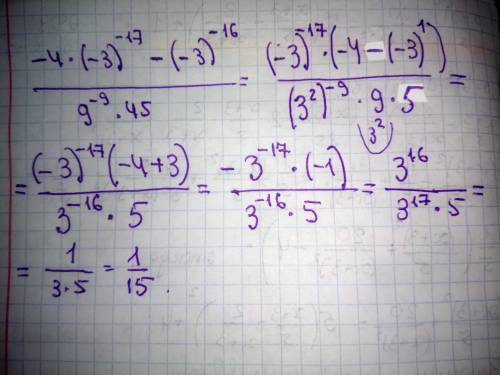 (-4·(-3)^{-17} - (-3)^{-16}) / (9^{-9}·45) = ((-3)^{-17}·(-4-(-3)^{1})) / ((3^{2})^{-9}·9·5) =
3^{2}
= ((-3)^{-17}(-4+3)) / (3^{-16}·5) = (-3^{-17}·(-1)) / (3^{-16}·5) = 3^{16} / (3^{17}·5) =
= 1 / (3·5) = 1/15.